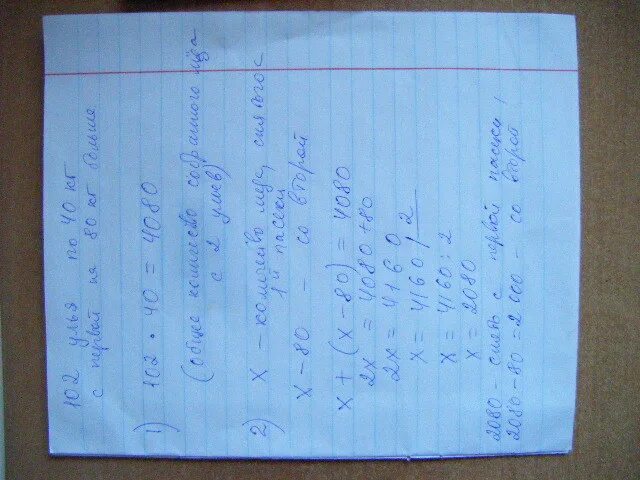 102 улья по 40 кг
с первый на 80 кг больше
1) 102 · 40 = 4080
(общее количество собранного мёда
с 2 ульев)
2) x – количество меда, снятого с
1й пасеки
x – 80 – со второй
x + (x – 80) = 4080
2x = 4080 + 80
2x = 4160
x = 4160 / 2
x = 4160 : 2
x = 2080
2080 – снять с первой пасеки /
2080 – 80 = 2000 – со второй